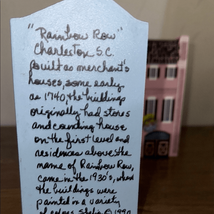 "Rainbow Row"
Charleston S.C.
Built as merchant's
houses, some early
as 1740, the buildings
originally had stores
and counting house
on the first level and
residences above the
name of Rainbow Row,
came in the 1930's, when
the buildings were
painted in a variety
of color